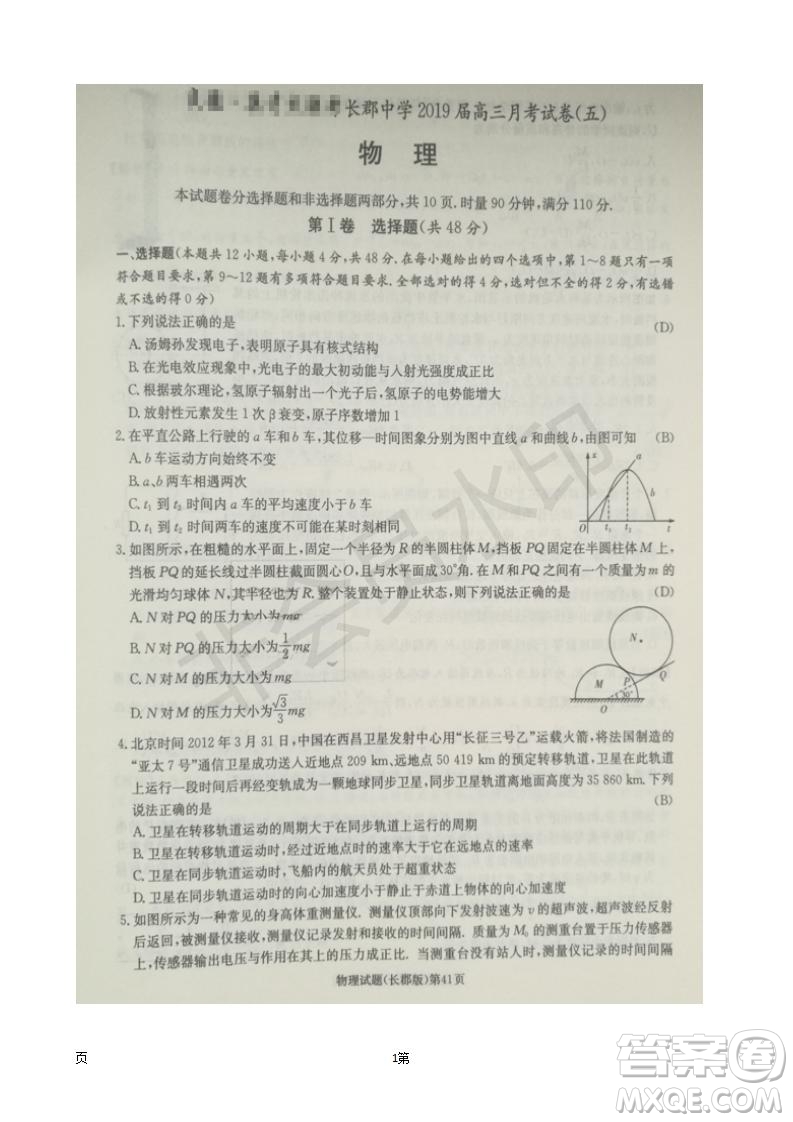 长郡中学2019届高三月考试卷(五)
物 理
本试题卷分选择题和非选择题两部分,共10页.时量90分钟,满分110分.
第Ⅰ卷 选择题(共48分)
一、选择题(本题共12小题,每小题4分,共48分.在每小题给出的四个选项中,第1~8题只有一项
符合题目要求,第9~12题有多项符合题目要求.全部选对的得4分,选对但不全的得2分,有选错
或不选的得0分)
1.下列说法正确的是 (D)
A.汤姆孙发现电子,表明原子具有核式结构
B.在光电效应现象中,光电子的最大初动能与入射光强度成正比
C.根据玻尔理论,氢原子辐射出一个光子后,氢原子的电势能增大
D.放射性元素发生1次β衰变,原子序数增加1
2.在平直公路上行驶的a车和b车,其位移—时间图象分别为图中直线a和曲线b,由图可知 (B)
A.b车运动方向始终不变
B.a、b两车相遇两次
C.t₁到t₂时间内a车的平均速度小于b车
D.t₁到t₂时间两车的速度不可能在某时刻相同
x a b O t₁ t₂ t
3.如图所示,在粗糙的水平面上,固定一个半径为R的半圆柱体M,挡板PQ固定在半圆柱体M上,
挡板PQ的延长线过半圆柱截面圆心O,且与水平面成30°角.在M和PQ之间有一个质量为m的
光滑均匀球体N,其半径也为R.整个装置处于静止状态,则下列说法正确的是 (D)
A.N对PQ的压力大小为mg
B.N对PQ的压力大小为1/2mg
C.N对M的压力大小为mg
D.N对M的压力大小为√3/3mg
N M P Q 30° O
4.北京时间2012年3月31日,中国在西昌卫星发射中心用“长征三号乙”运载火箭,将法国制造的
“亚太7号”通信卫星成功送入近地点209 km、远地点50 419 km的预定转移轨道,卫星在该轨道
上运行一段时间后再经变轨成为一颗地球同步卫星,同步卫星轨道高度为35 860 km.下列
说法正确的是 (B)
A.卫星在转移轨道运动的周期大于在同步轨道上运行的周期
B.卫星在转移轨道运动时,经过近地点时的速率大于它在远地点的速率
C.卫星在同步轨道运动时,飞船内的航天员处于超重状态
D.卫星在同步轨道运动时的向心加速度小于静止于赤道上物体的向心加速度
5.如图所示为一种常见的身高体重测量仪.测量仪顶部向下发射波速为v的超声波,超声波经反射
后返回,被测量仪接收,测量仪记录发射和接收的时间间隔.质量为M₀的测重台置于压力传感器
上,传感器输出电压与作用在其上的压力成正比.当测重台没有站人时,测量仪记录的时间间隔
物理试题(长郡版)第41页
非会员水印
页 1第
答案圈
MXQE.COM